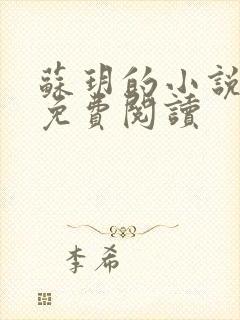 蘇玥的小說
免費閱讀
李希